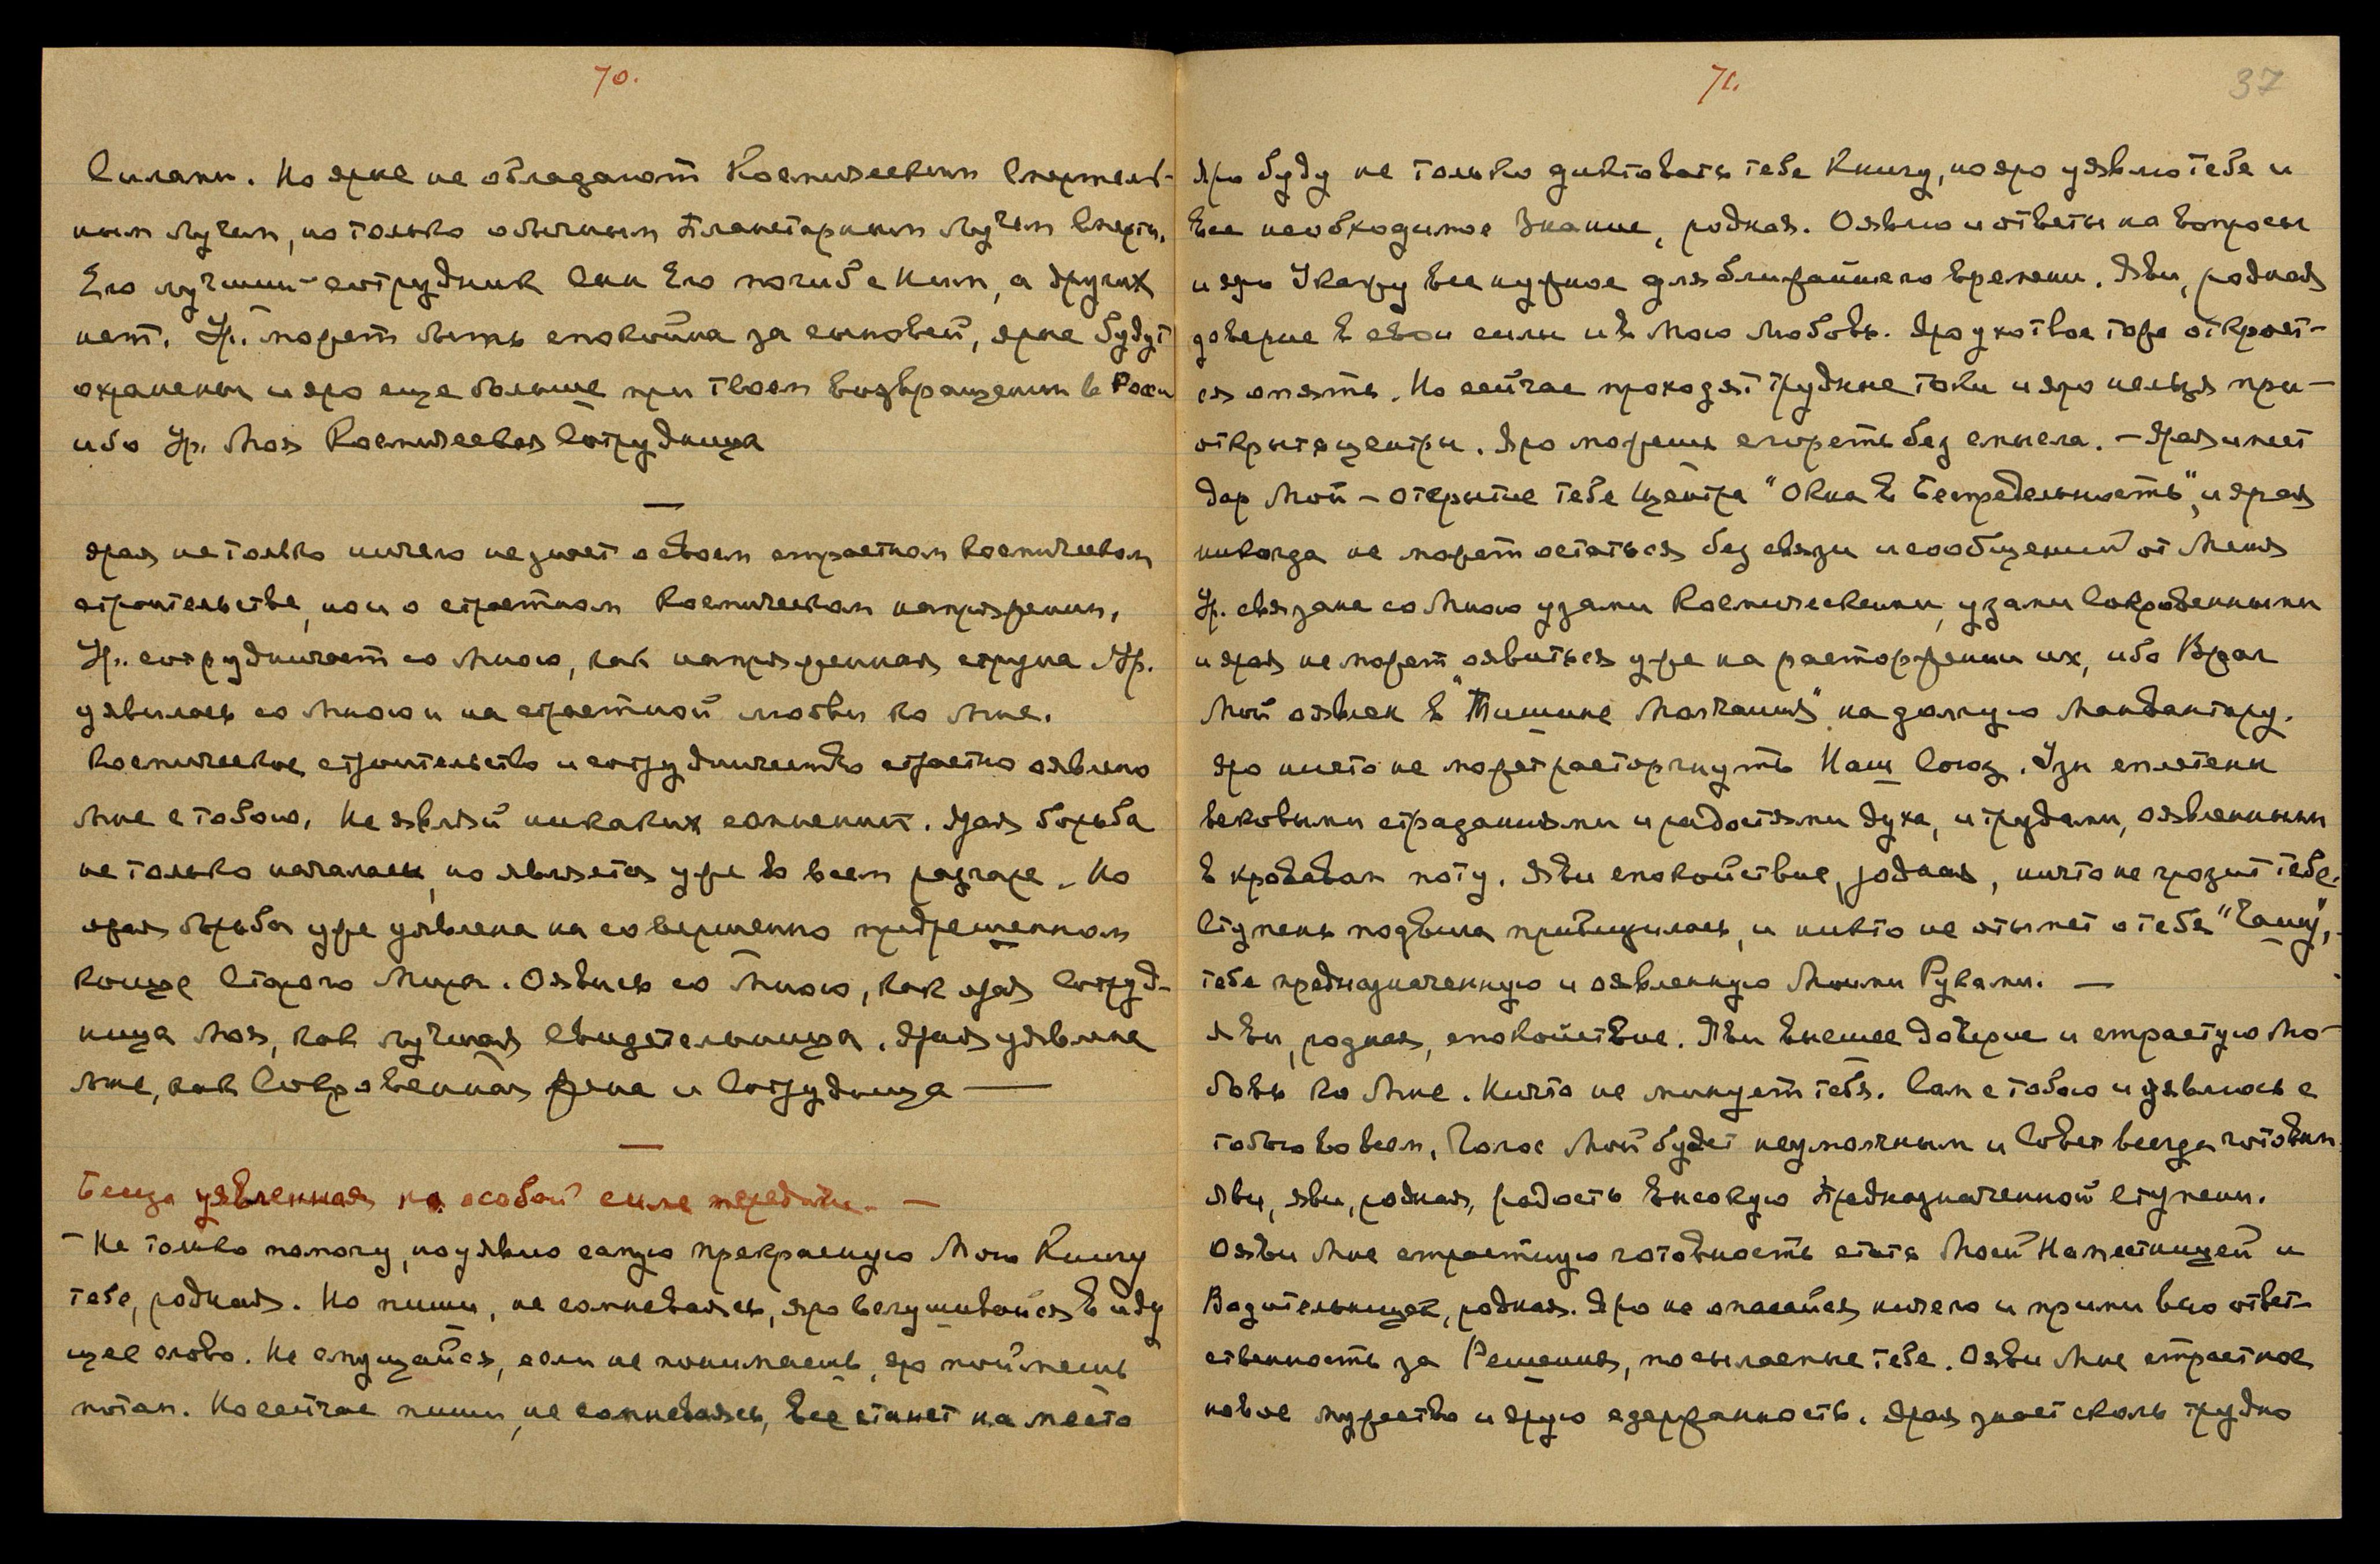 70.
Силами. Но ярые не обладают Космическим Смертель-
ным лучем, но только обычным Планетарным лучем Смерти,
Его лучший сотрудник Сам Его погибе Ним, а других
нет. Ур. может быть спокойна за сыновей, ярые будут
охранены и яро еще больше при твоем возвращении в Росси
ибо Ур. Моя Космическая Сотрудница
—
ярая не только ничего не знает о своем страстном космическом
строительстве, но и о страстном Космическом напряжении,
Ур. сотрудничает со Мною, как напряженная струна Ур.
уявилась со Мною и на страстной любви ко Мне.
Космическое строительство и сотрудничество страстно оявлено
Мне с тобою. Не являй никаких сомнений. Ярая борьба
не только началась, но является уже во всем разгаре. Но
ярая борьба уже уявлена на совершенно предрешенном
конце Старого Мира. Оявись со Мною, как ярая Сотруд-
ница Моя, как лучшая Свидетельница. Ярая уявлена
Мне, как Сокровенная Жена и Сотрудница —
—
Беседа уявленная на особой силе передачи. —
— Не только помогу, но уявлю самую прекрасную Мою Книгу
тебе, родная. Но пиши, не сомневаясь, яро вслушивайся в иду
щее слово. Не смущайся, если не понимаешь, яро поймешь
потом. Но сейчас пиши, не сомневаясь, Все станет на место
71.
37
Яро буду не только диктовать тебе Книгу, но яро уявлю тебе и
Все необходимое Знание, родная. Оявлю и ответы на вопросы
и яро Укажу все нужное для ближайшего времени. Яви, родная
доверие в свои силы и в Мою Любовь. Яро ухо твое тоже откроет-
ся опять. Но сейчас проходят трудные токи и яро нельзя при-
открыть центры. Яро можешь сгореть без смысла. — Ярая имеет
Дар Мой — открытие тебе Центра "Окна в Беспредельность", и ярая
никогда не может остаться без связи и сообщений от Меня
Ур. связана со Мною узами Космическими, узами Сокровенными
и ярая не может оявиться уже на расторжении их, ибо Враг
Мой оявлен в "Тишине Молчания" на долгую Манвантару.
Яро ничто не может расторгнуть Наш Союз. Узы сплетены
вековыми страданиями и радостями духа, и трудами, оявленными
в кровавом поту. Яви спокойствие, родная, ничто не грозит тебе.
Ступень подвига приблизилась, и никто не отымет от тебя "Чашу",
тебе предназначенную и оявленную Моими Руками. —
Яви, родная, спокойствие. Яви высшее Доверие и страстную Лю-
бовь ко Мне. Ничто не минует тебя. Сам с тобою и уявлюсь с
тобою во всем, Голос Мой будет неумолчным и Совет всегда готовым.
Яви, яви, родная, радость Высокую Предназначенной Ступени.
Ояви Мне страстную готовность стать Моей Наместницей и
Водительницей, родная. Яро не опасайся ничего и прими всю ответ-
ственность за Решения, посылаемые тебе. Ояви Мне страстное
новое мужество и ярую сдержанность. Ярая знает сколь трудно